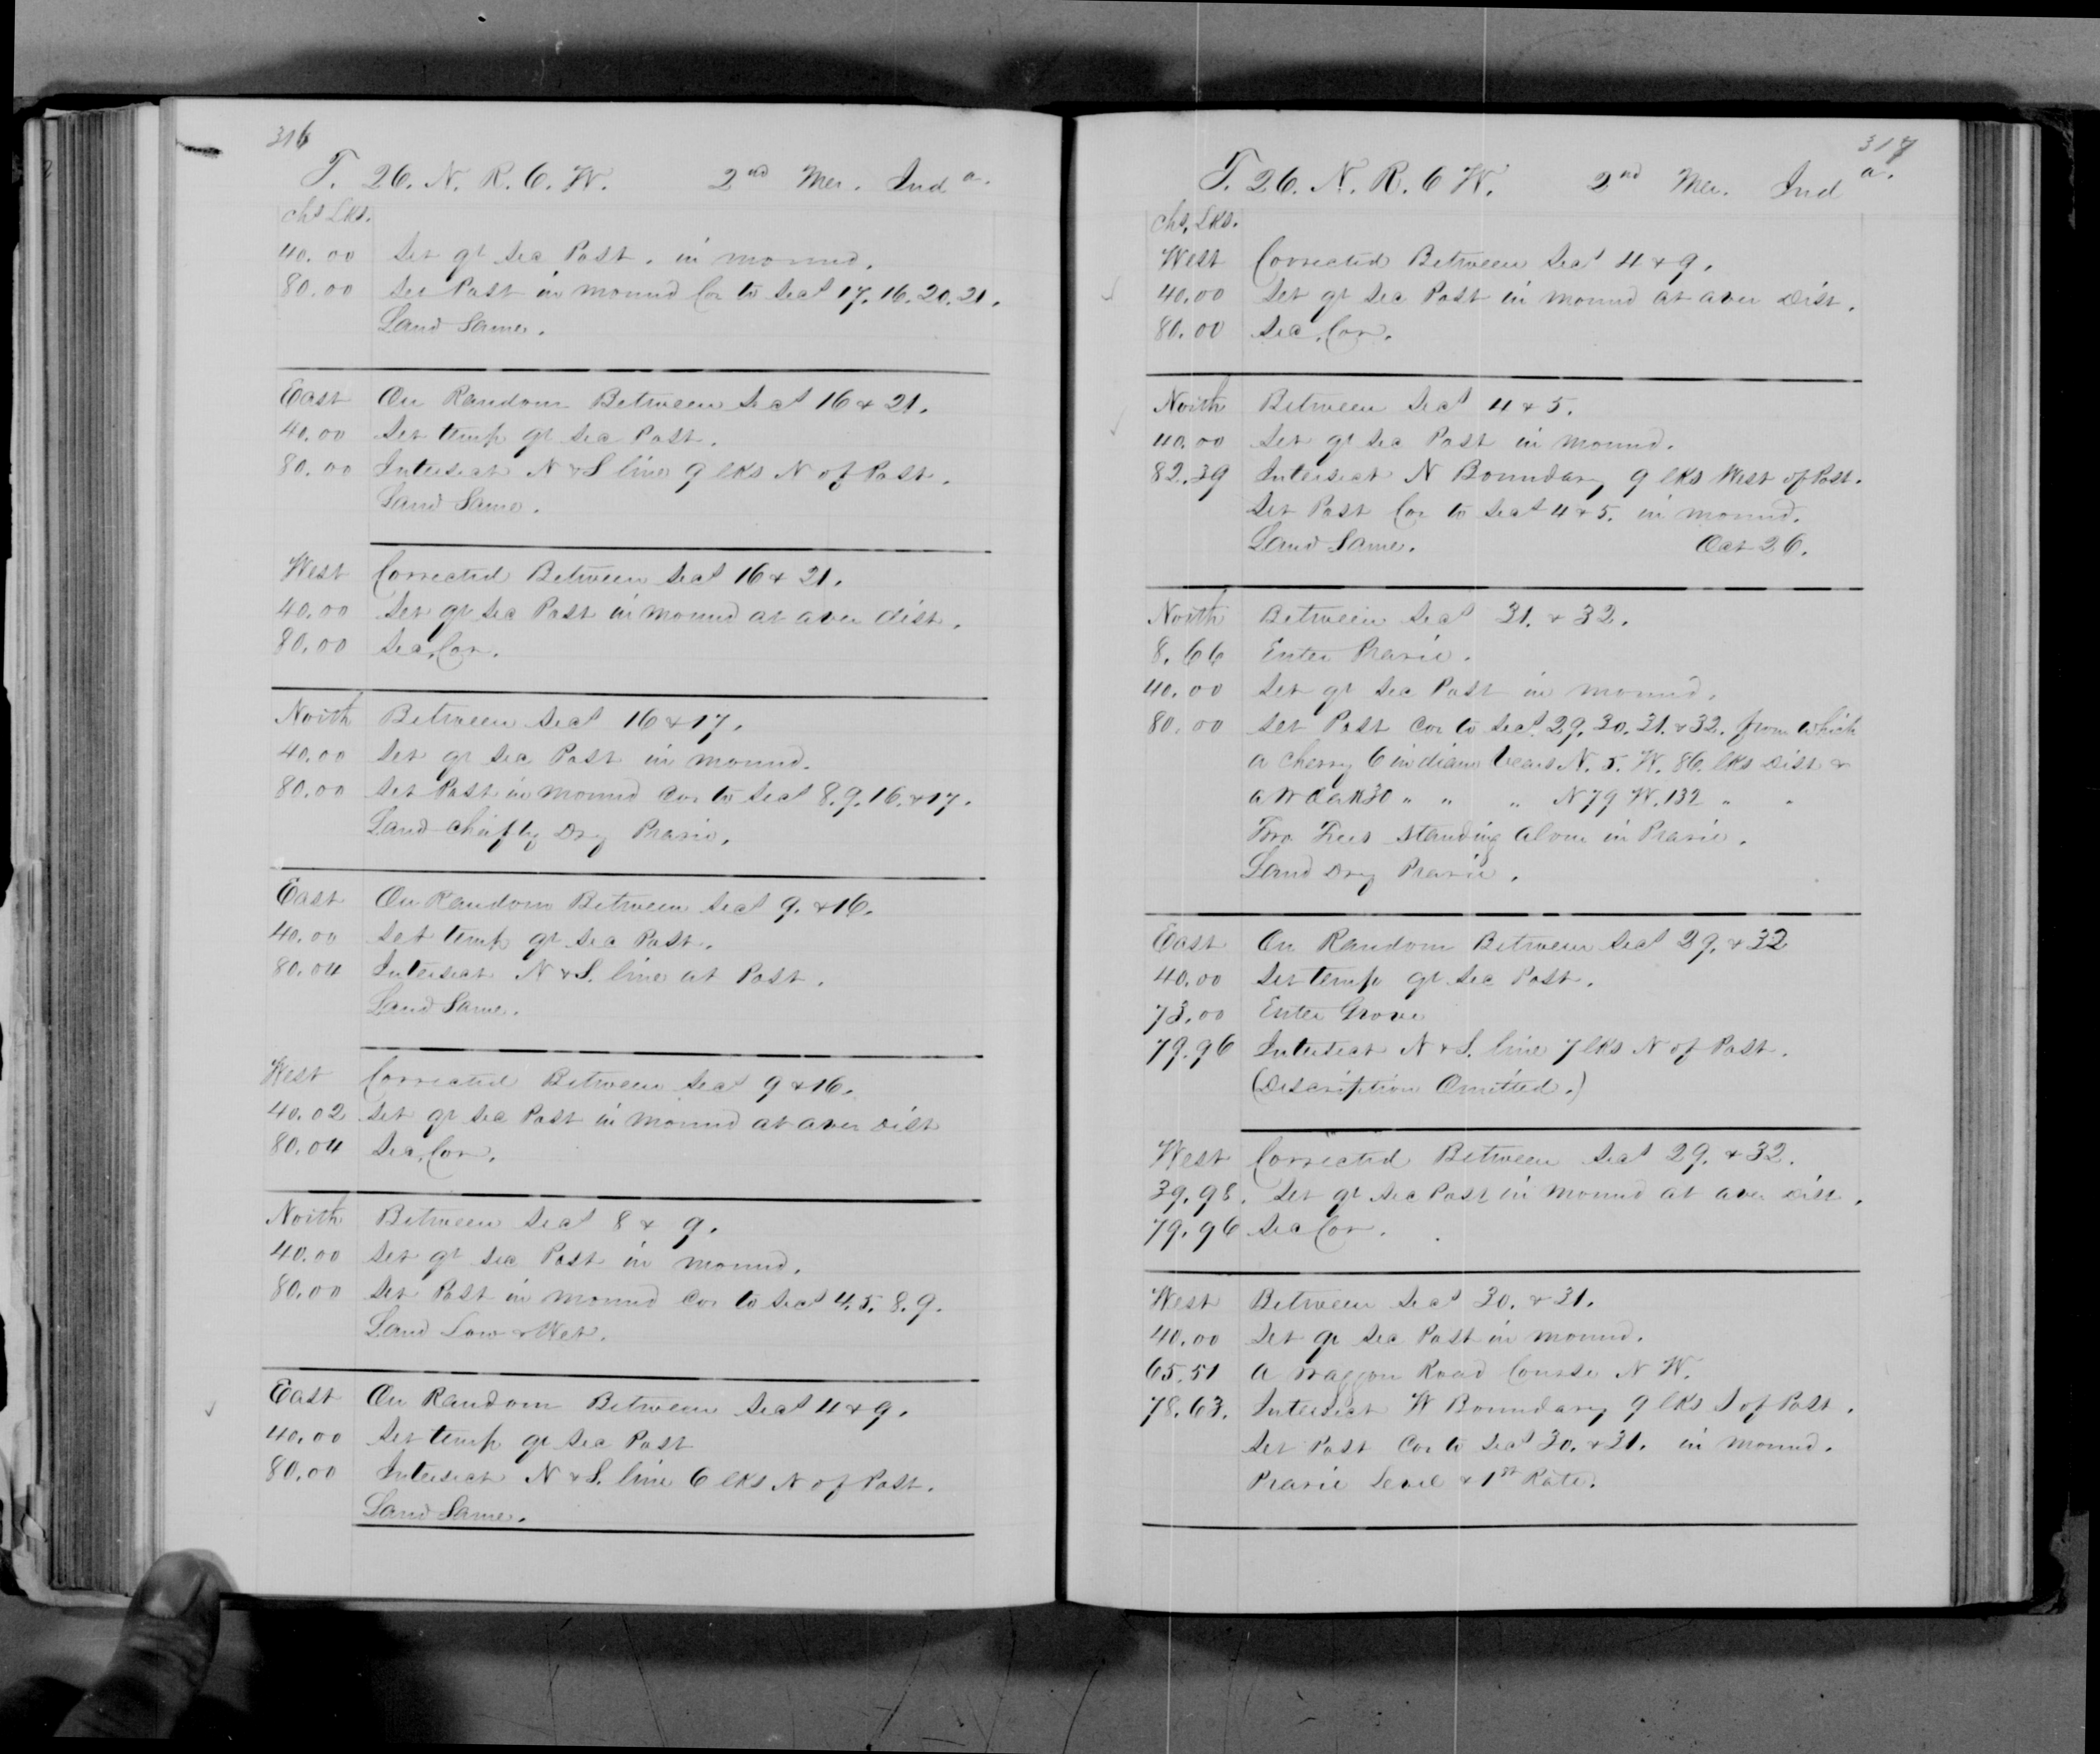 316
T. 26. N. R. 6. W. 2nd Mer. Inda.
Chs Lks.
40.00 Set qr Sec Post. in mound.
80.00 Set Post in mound Cor to Secs 17. 16. 20. 21.
Land Same.
East On Random Between Secs 16 & 21.
40.00 Set temp qr Sec Post.
80.00 Intersect N & S line 9 lks N of Post.
Land Same.
West Corrected Between Secs 16 & 21.
40.00 Set qr Sec Post in mound at aver dist.
80.00 Sec. Cor.
North Between Secs 16 & 17.
40.00 Set qr Sec Post in mound.
80.00 Set Post in mound Cor to Secs 8. 9. 16. & 17.
Land chiefly Dry Prarie.
East On Random Between Secs 9. & 16.
40.00 Set temp qr Sec Post.
80.04 Intersect N & S. line at Post.
Land Same.
West Corrected Between Secs 9 & 16.
40.02 Set qr Sec Post in mound at aver dist
80.04 Sec. Cor.
North Between Secs 8 & 9.
40.00 Set qr Sec Post in mound.
80.00 Set Post in mound Cor to Secs 4. 5. 8. 9.
Land Low & Wet.
East On Random Between Secs 4 & 9.
40.00 Set temp qr Sec Post
80.00 Intersect N & S. line 6 lks N of Post.
Land Same.
317
T. 26. N. R. 6 W. 2nd Mer. Inda.
Chs. Lks.
West Corrected Between Secs 4 & 9.
40.00 Set qr Sec Post in mound at aver dist.
80.00 Sec. Cor.
North Between Secs 4 & 5.
40.00 Set qr Sec Post in mound.
82.39 Intersect N Boundary 9 lks West of Post.
Set Post Cor to Secs 4 & 5. in mound.
Land Same. Oct 26.
North Between Secs 31. & 32.
8.66 Enter Prarie.
40.00 Set qr Sec Post in mound.
80.00 Set Post Cor to Secs. 29. 30. 31. & 32. from which
a Cherry 6 in diam bears N. 5. W. 86. lks dist &
a W Oak 30 " " " N 79 W. 132 " "
Two Trees standing alone in Prarie.
Land Dry Prarie.
East On Random Between Secs 29. & 32
40.00 Set temp qr Sec Post.
73.00 Enter Grove
79.96 Intersect N & S. line 7 lks N of Post.
(Description Omitted.)
West Corrected Between Secs 29. & 32.
39.98. Set qr Sec Post in mound at aver dist.
79.96 Sec Cor.
West Between Secs 30. & 31.
40.00 Set qr Sec Post in mound.
65.51 A waggon Road Course N W.
78.63. Intersect W Boundary 9 lks S of Post.
Set Post Cor to Secs 30. & 31. in mound.
Prarie Level & 1st Rate.